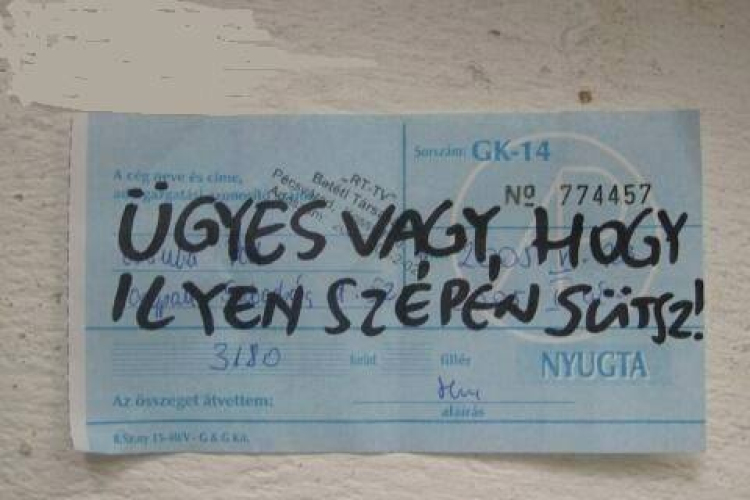 Sorszám: GK-14
A cég neve és címe,
Nº 774457
„RT-TV"
Betéti Társ
Pécsvárad,
ÜGYES VAGY, HOGY
ILYEN SZÉPEN SÜTSZ!
3180
fillér
NYUGTA
Az összeget átvettem:
aláírás
B.Sz.ny 15-40/V - G & G Kft.